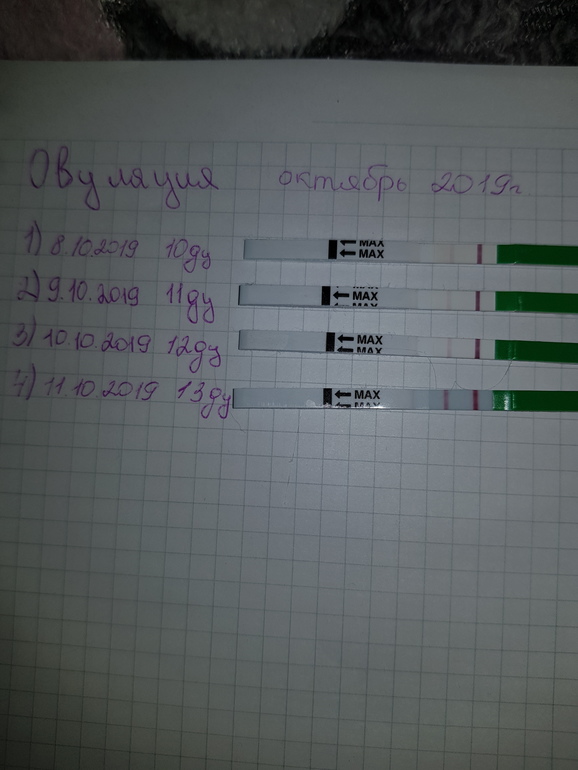 Овуляция октябрь 2019г
1) 8.10.2019 10ду MAX MAX
2) 9.10.2019 11ду MAX
3) 10.10.2019 12ду MAX MAX
4) 11.10.2019 13ду MAX MAX